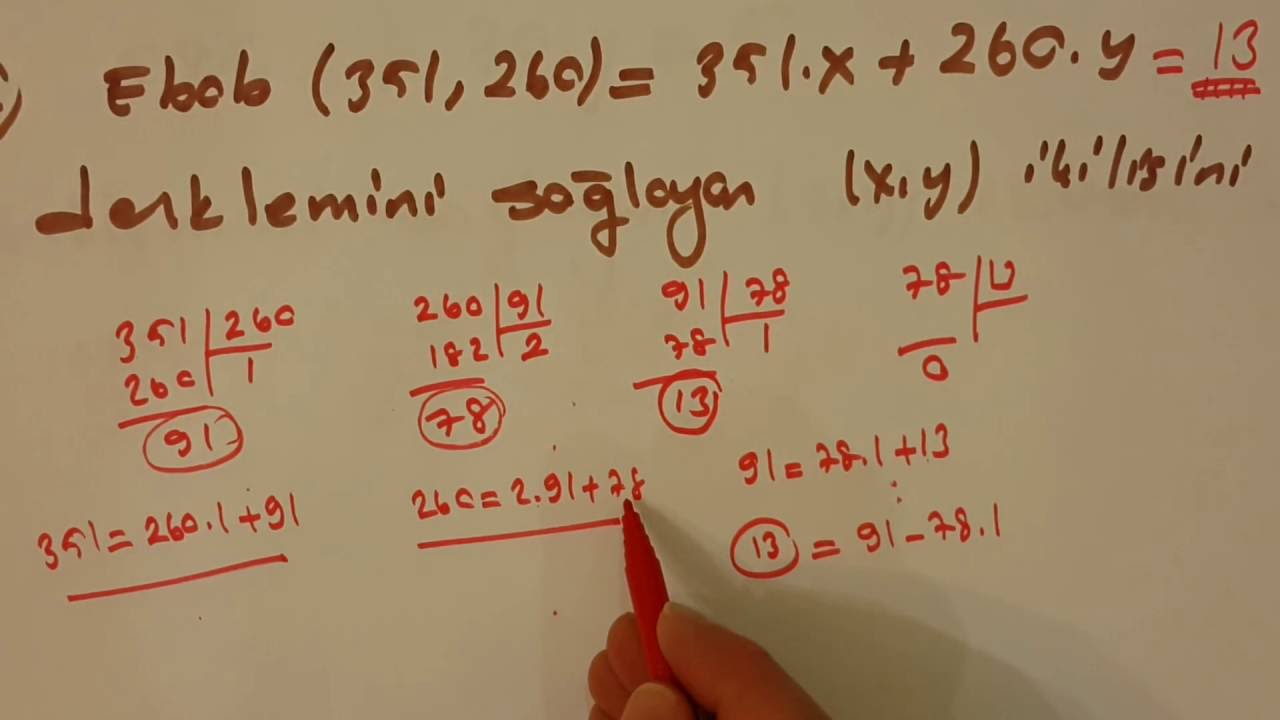 Ebob (351, 260) = 351.x + 260.y = 13
denklemini sağlayan (x,y) ikilisini
351 | 260 260 | 91 91 | 78 78 | 13
260 | 1 182 | 2 78 | 1
91 78 13 0
351 = 260.1 + 91 260 = 2.91 + 78 91 = 78.1 + 13
13 = 91 - 78.1